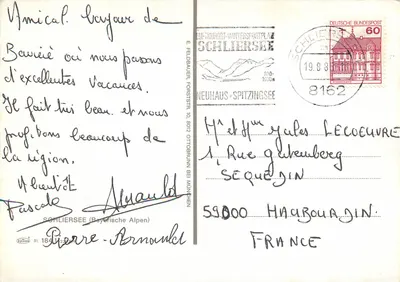 Amical bonjour de
Bavière où nous passons
d'excellentes vacances.
Il fait très beau et nous
profitons beaucoup de
la région.
A bientôt
Pascale Arnauld
SCHLIERSEE (Bayerische Alpen)
Pierre-Arnauld
E. FELBAUER, FORSTSTR. 10, 8012 OTTOBRUNN BEI MÜNCHEN
SCHLIERSEE
NEUHAUS-SPITZINGSEE
SCHLIERSEE
19.8.8
8162
DEUTSCHE BUNDESPOST
60
Mr et Mme Jules LECOEUVRE
1, Rue Gutenberg
SEQUEDIN
59000 HAUBOURDIN.
FRANCE